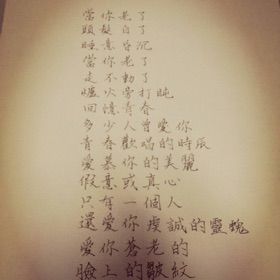 當你老了
頭髮白了
睡意昏沉
當你老了
走不動了
爐火旁打盹
回憶青春
多少人曾愛你
青春歡唱的時辰
愛慕你的美麗
假意或真心
只有一個人
還愛你虔誠的靈魂
愛你蒼老的
臉上的皺紋